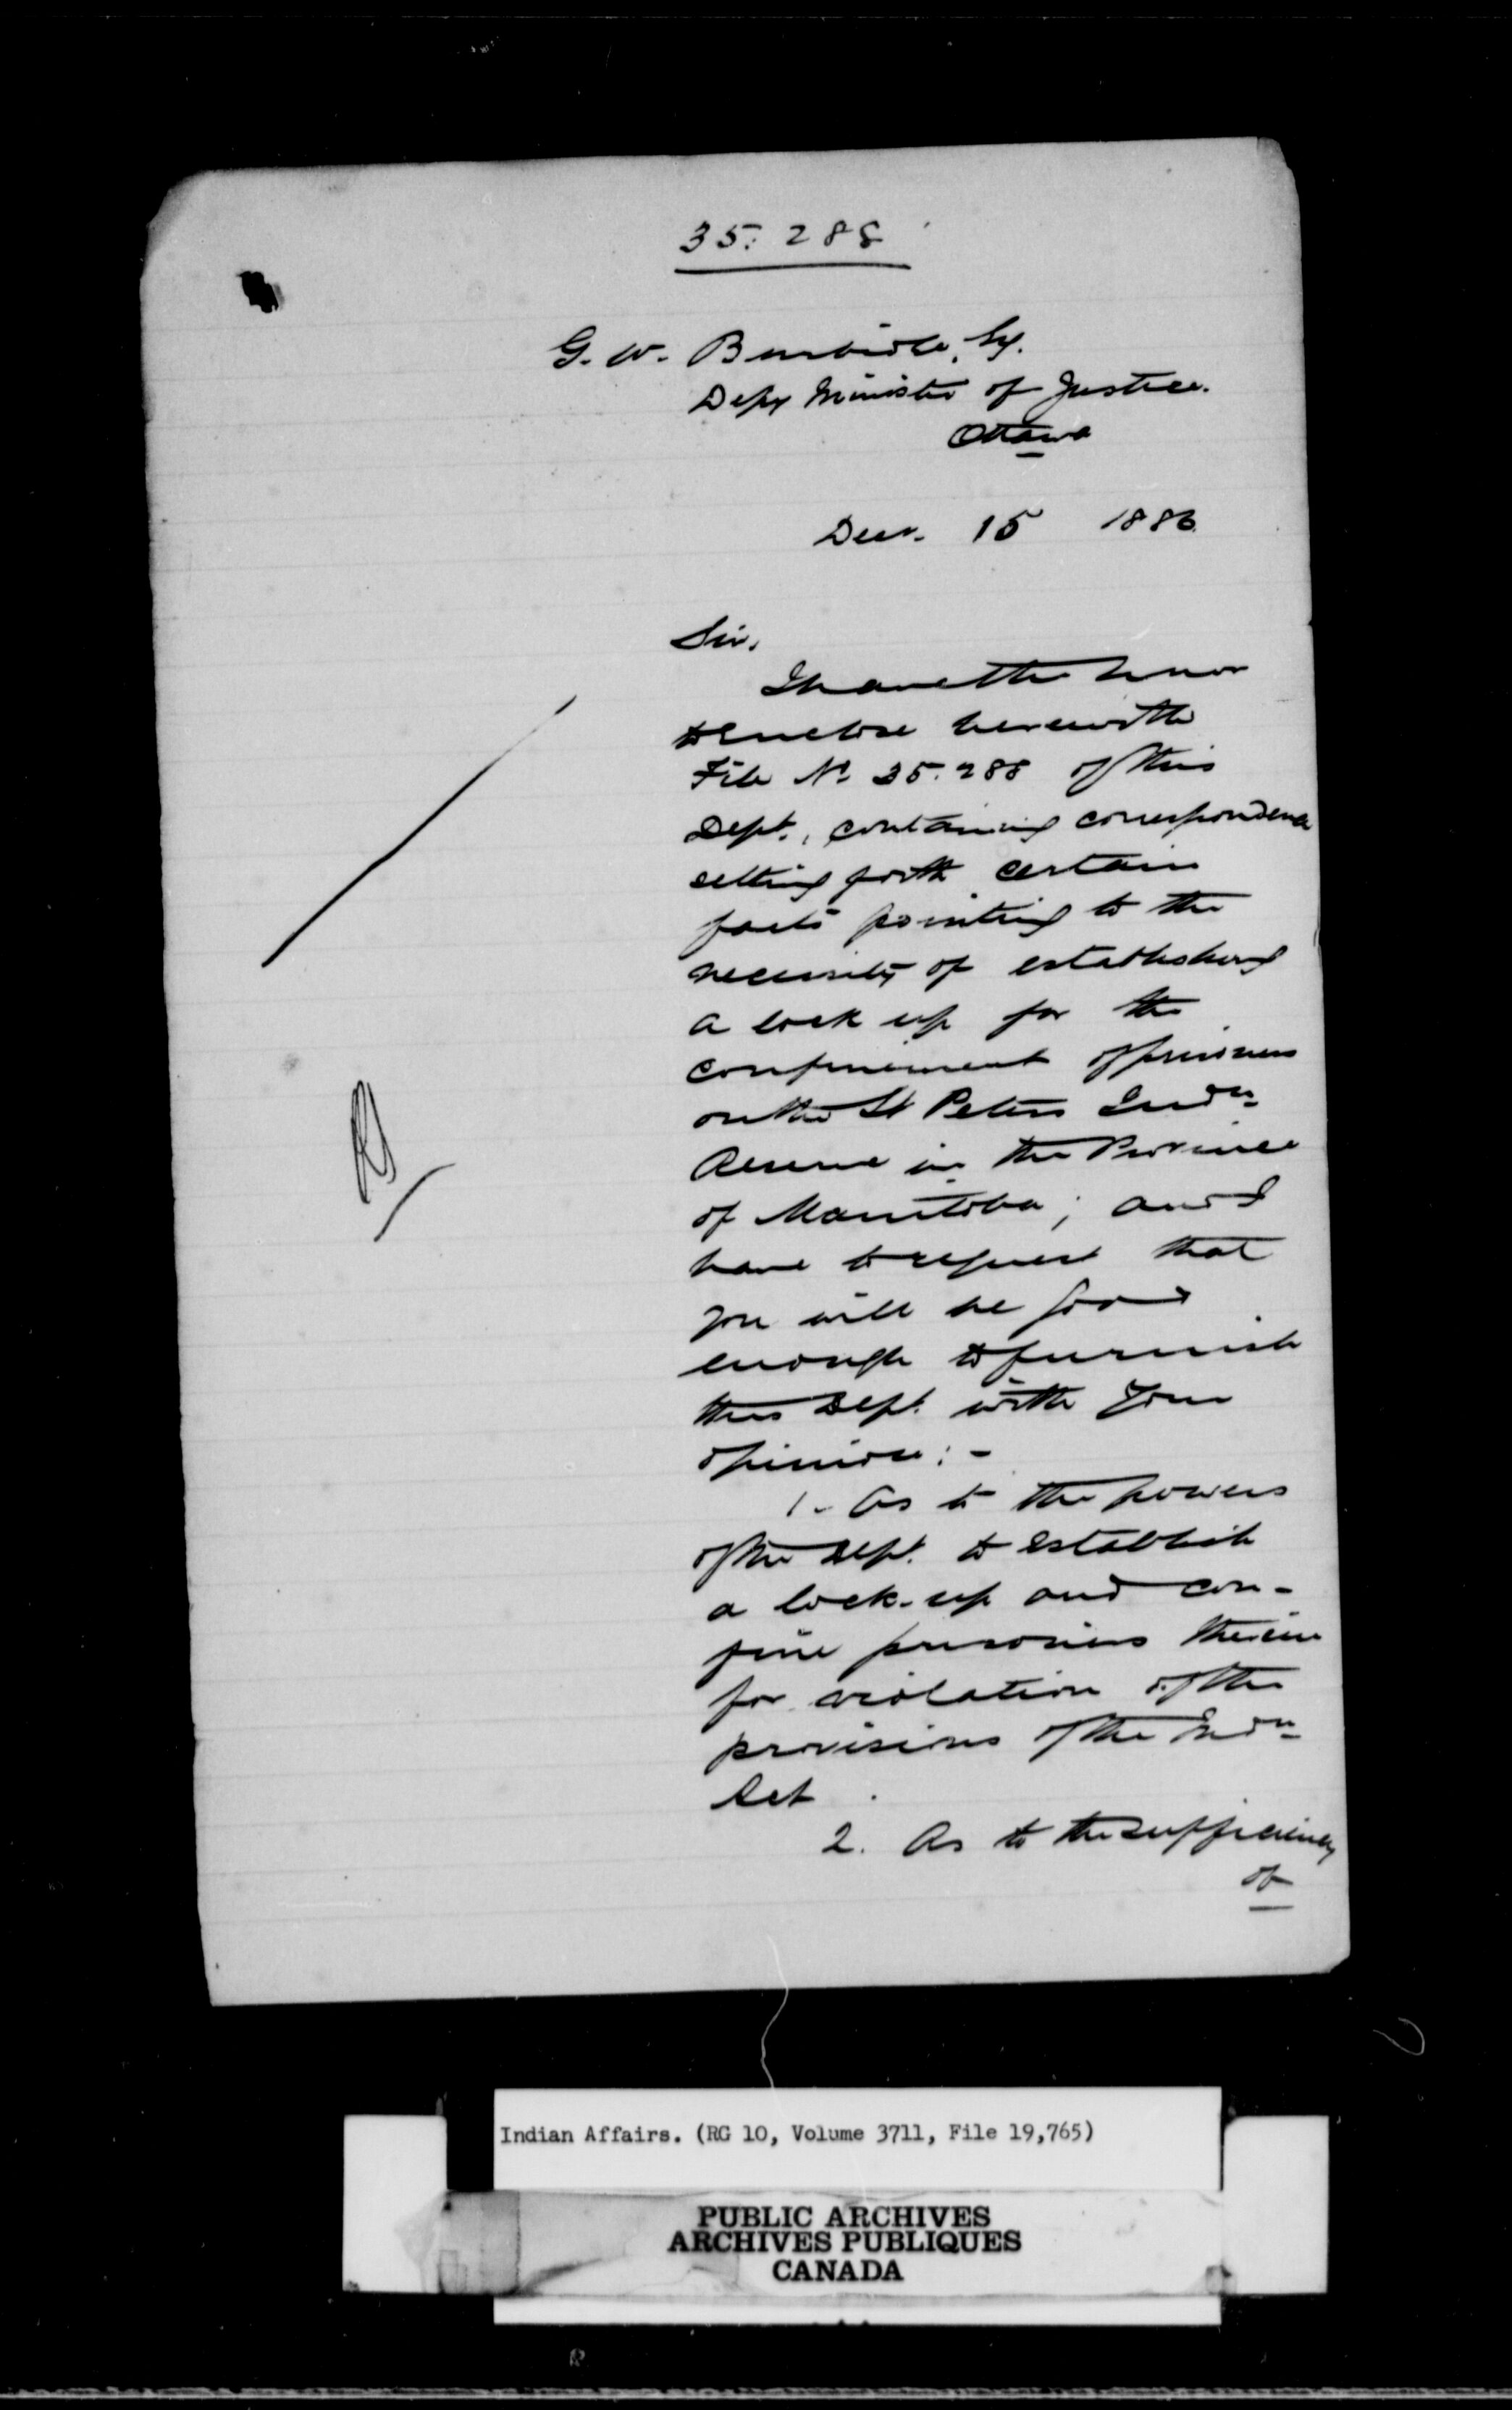 35.288
G. W. Burbidge, Esq.
Depy Minister of Justice.
Ottawa
Decr. 15 1886
Sir,
I have the honor
to enclose herewith
File No. 35.288 of this
Dept., containing correspondence
setting forth certain
facts pointing to the
necessity of establishing
a lock up for the
confinement of prisoners
on the St Peters Indn
Reserve in the Province
of Manitoba; and I
have to request that
you will be good
enough to furnish
this Dept. with your
opinion:-
1. As to the powers
of the Dept. to establish
a lock-up and con-
fine prisoners therein
for violation of the
provisions of the Indn
Act.
2. As to the sufficiency
of
Indian Affairs. (RG 10, Volume 3711, File 19,765)
PUBLIC ARCHIVES
ARCHIVES PUBLIQUES
CANADA